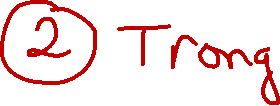 2 Trong